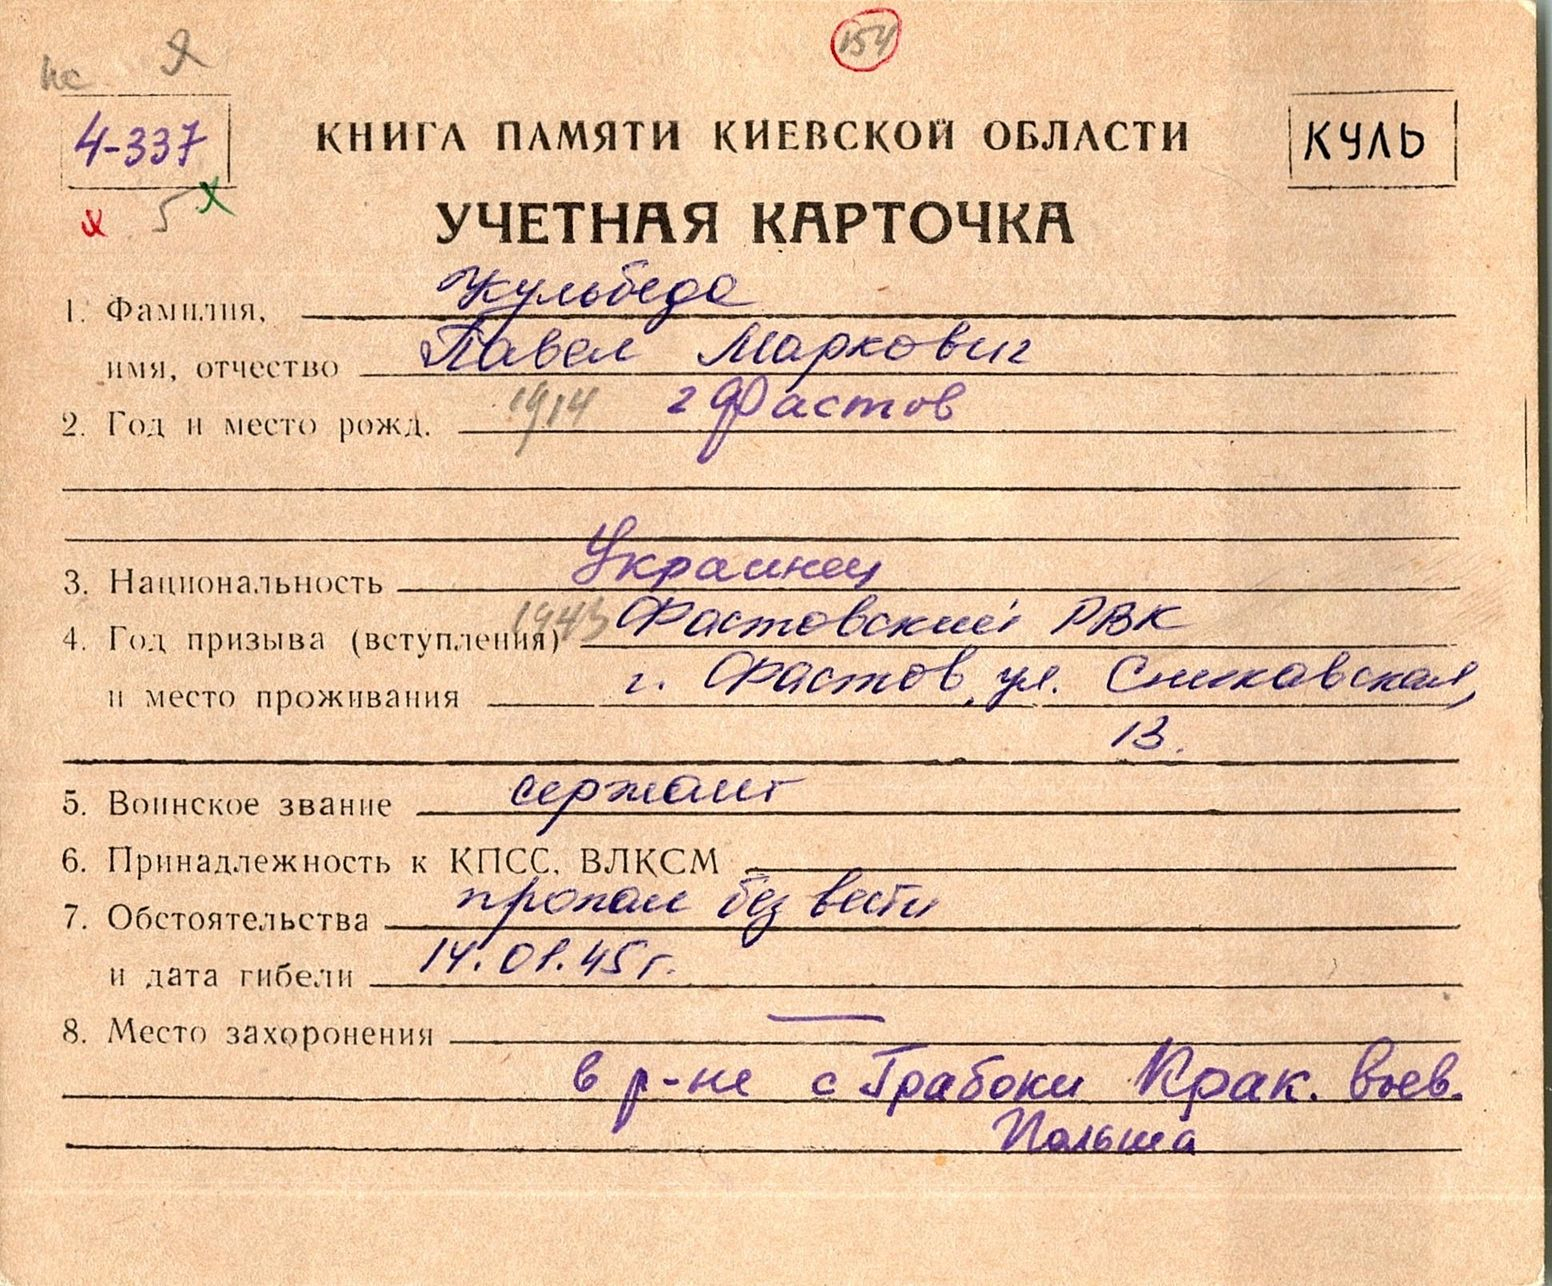 154
4-337
КНИГА ПАМЯТИ КИЕВСКОЙ ОБЛАСТИ
КУЛЬ
5
УЧЕТНАЯ КАРТОЧКА
1. Фамилия, Кульбеда
имя, отчество Павел Маркович
2. Год и место рожд. 1914 г Фастов
3. Национальность Украинец
4. Год призыва (вступления) 1943 Фастовский РВК
и место проживания г. Фастов, ул.
13.
5. Воинское звание сержант
6. Принадлежность к КПСС, ВЛКСМ
7. Обстоятельства пропал без вести
и дата гибели 14.01.45 г.
8. Место захоронения —
в р-не с Грабоки Крак. воев.
Польша